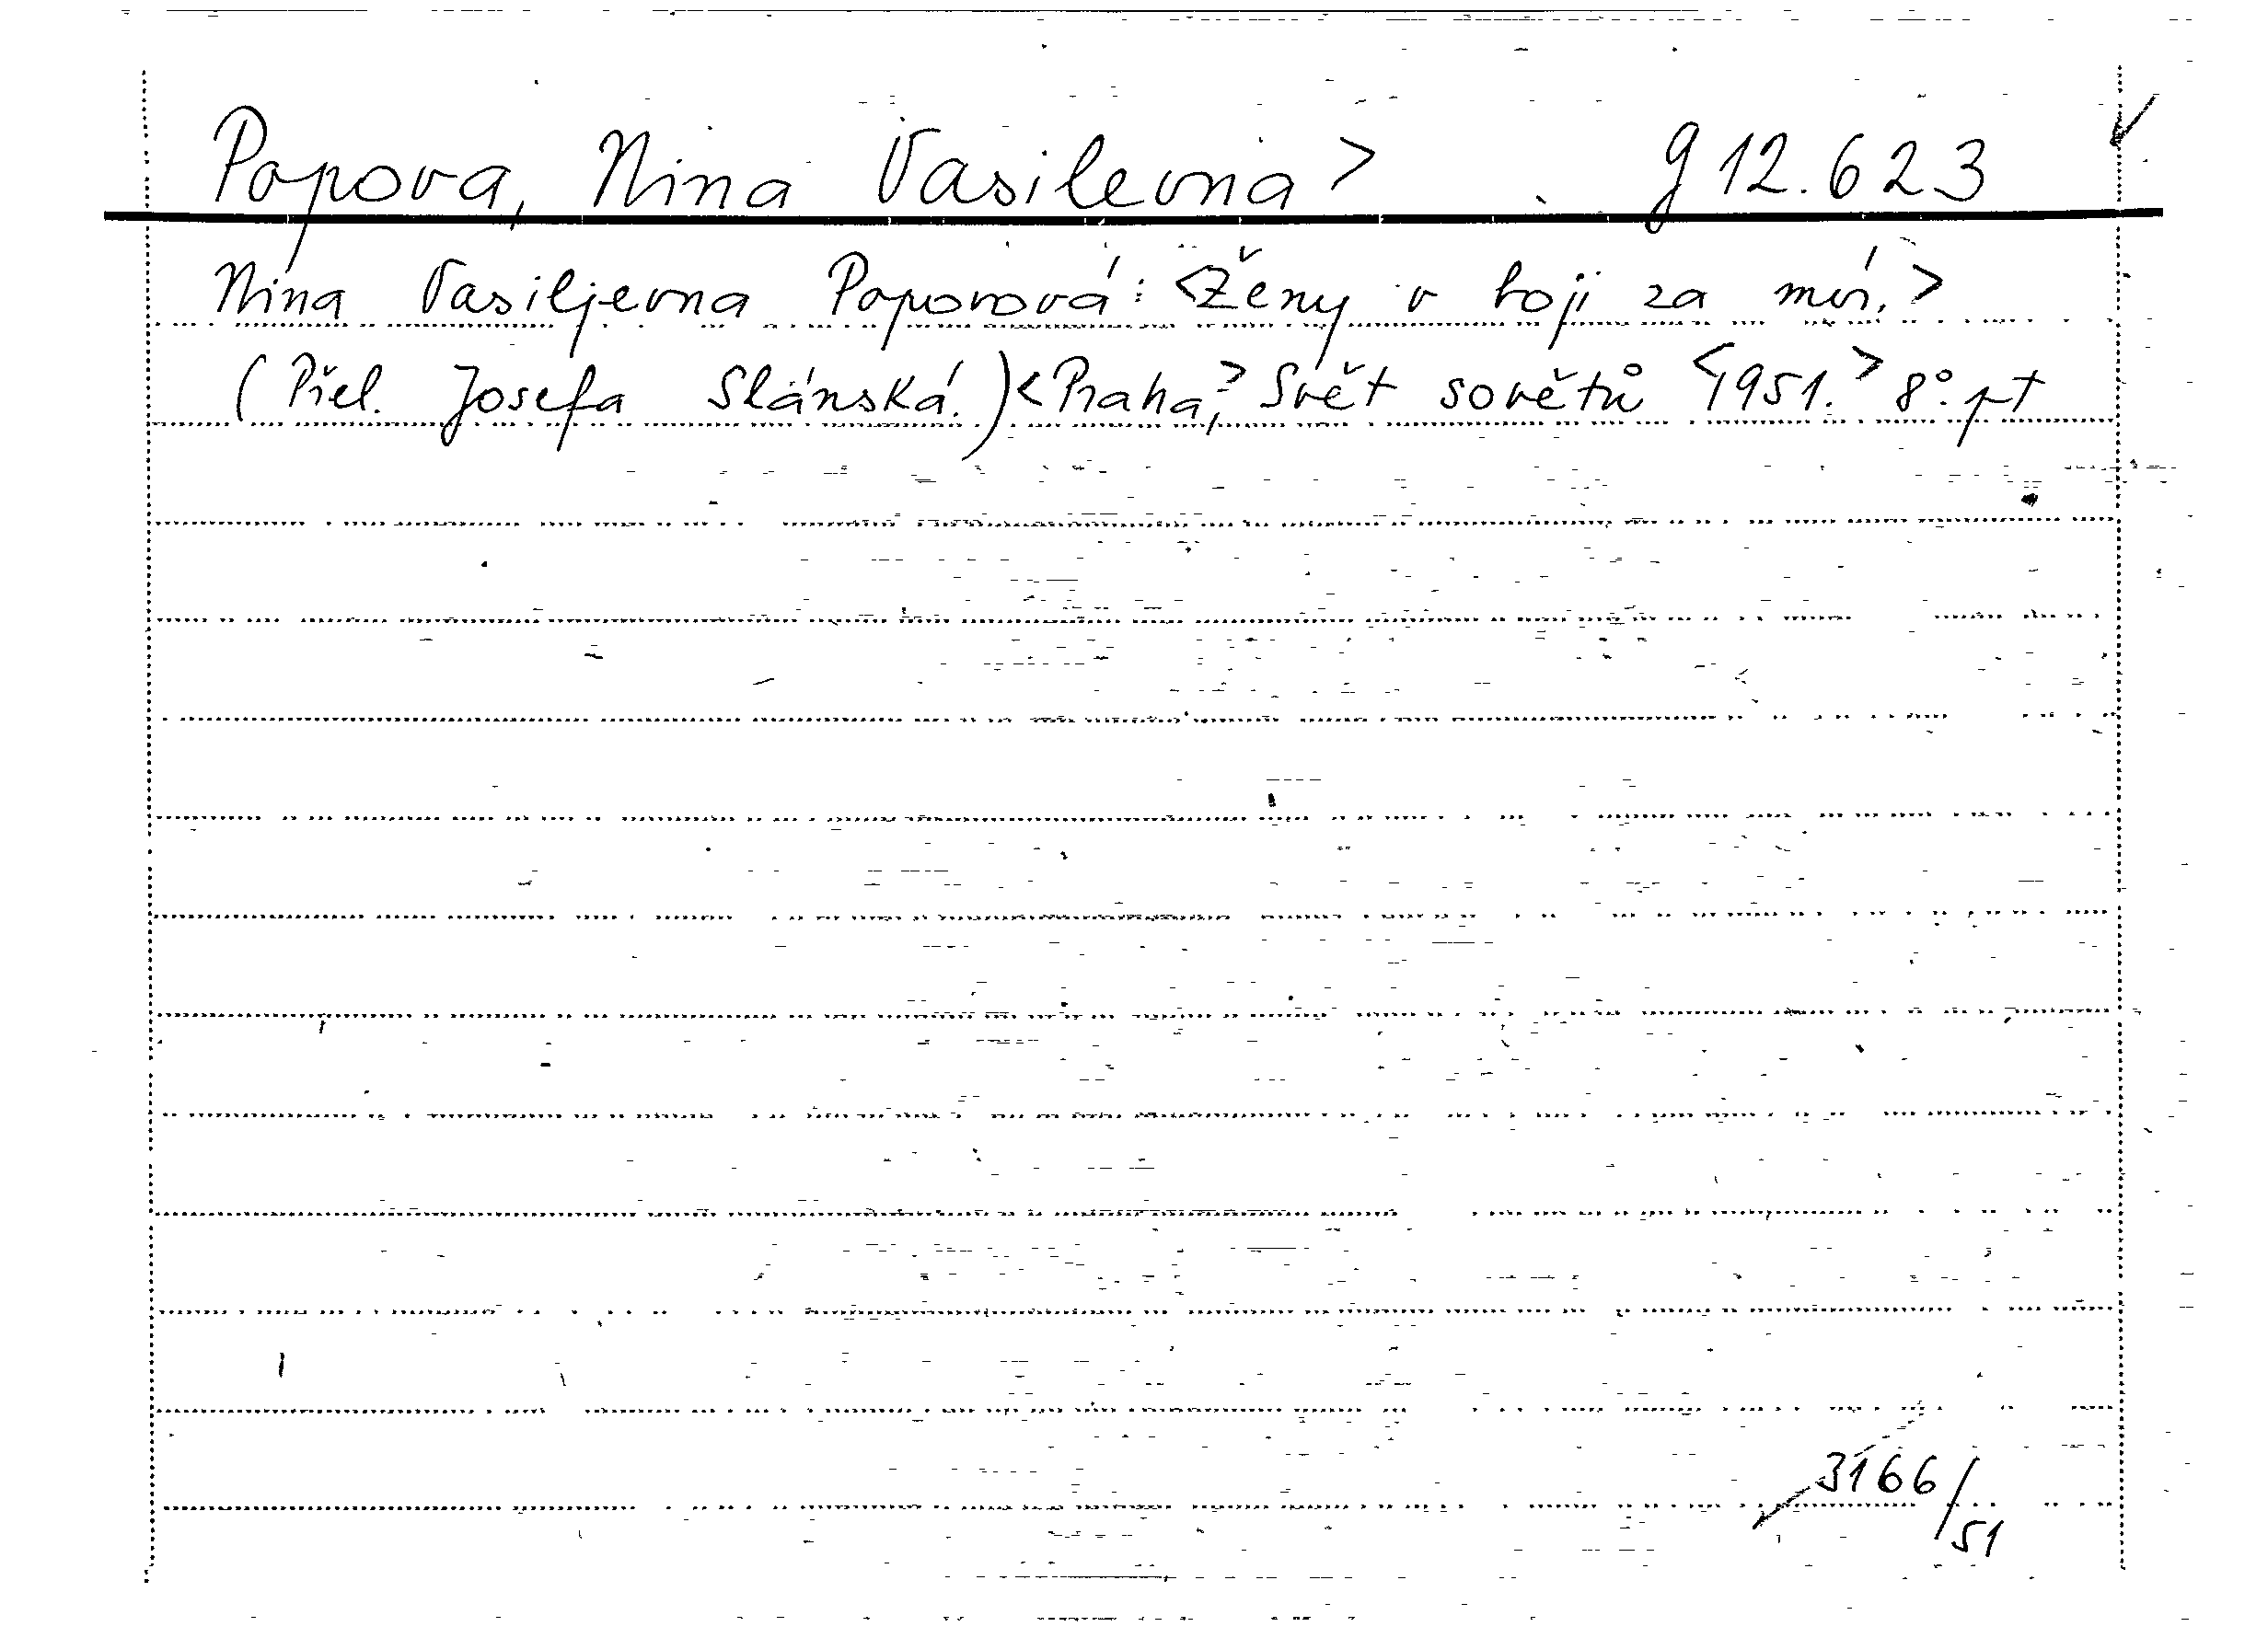 Popova, Nina Vasilevna> g 12.623
Nina Vasiljevna Popovová: <Ženy v boji za mír.>
(Přel. Josefa Slánská.) <Praha,> Svět sovětů <1951.> 8°. pt
3166/51